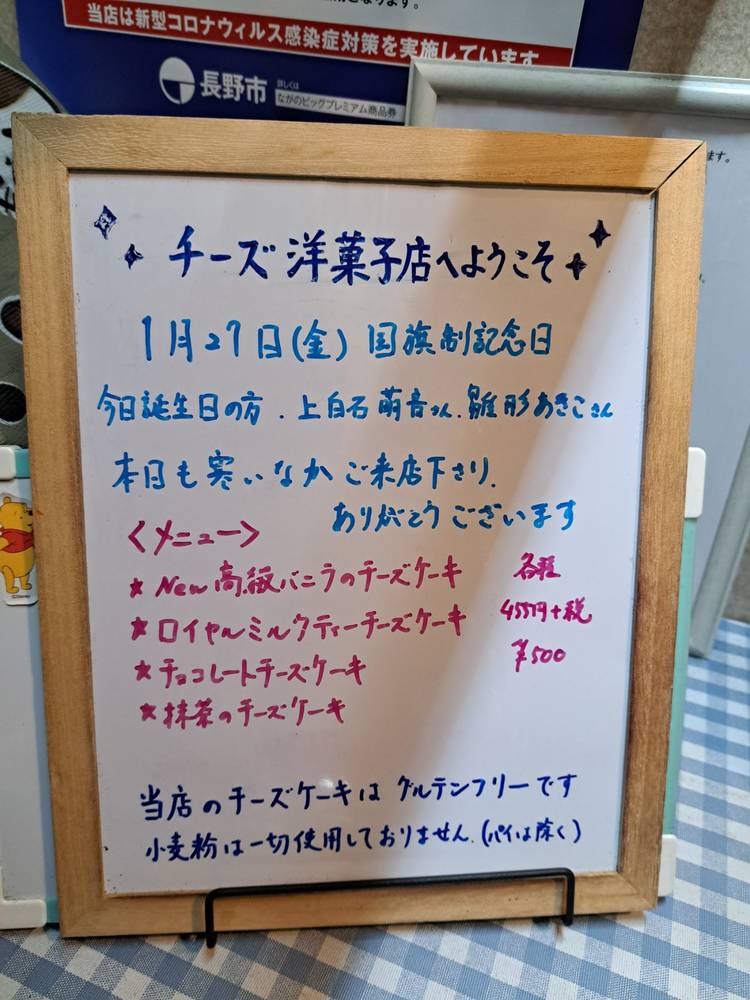 当店は新型コロナウィルス感染症対策を実施しています
長野市
詳しくは
ながのビッグプレミアム商品券
ます。
チーズ洋菓子店へようこそ
1月27日(金) 国旗制記念日
今日誕生日の方.上白石萌音さん.雛形あきこさん
本日も寒いなかご来店下さり.
ありがとうございます
<メニュー>
★New高級バニラのチーズケーキ 各種
★ロイヤルミルクティーチーズケーキ 455円+税
★チョコレートチーズケーキ ¥500
★抹茶のチーズケーキ
当店のチーズケーキは グルテンフリーです
小麦粉は一切使用しておりません.(パイは除く)